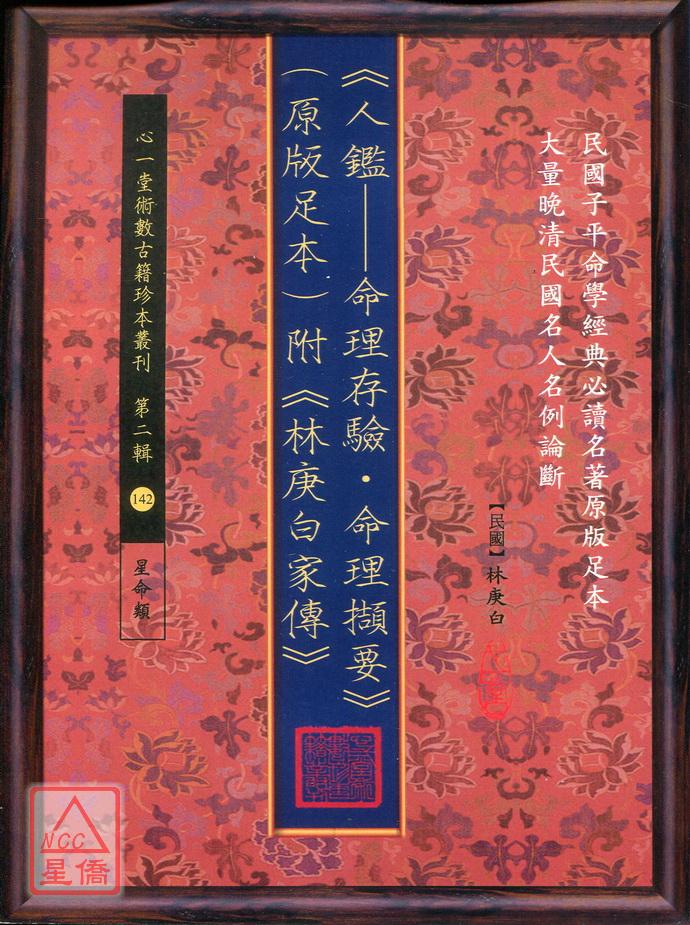 民國子平命學經典必讀名著原版足本
大量晚清民國名人名例論斷
【民國】林庚白
《人鑑——命理存驗・命理擷要》
（原版足本）附《林庚白家傳》
心一堂術數古籍珍本叢刊 第二輯
142
星命類
NCC
星僑